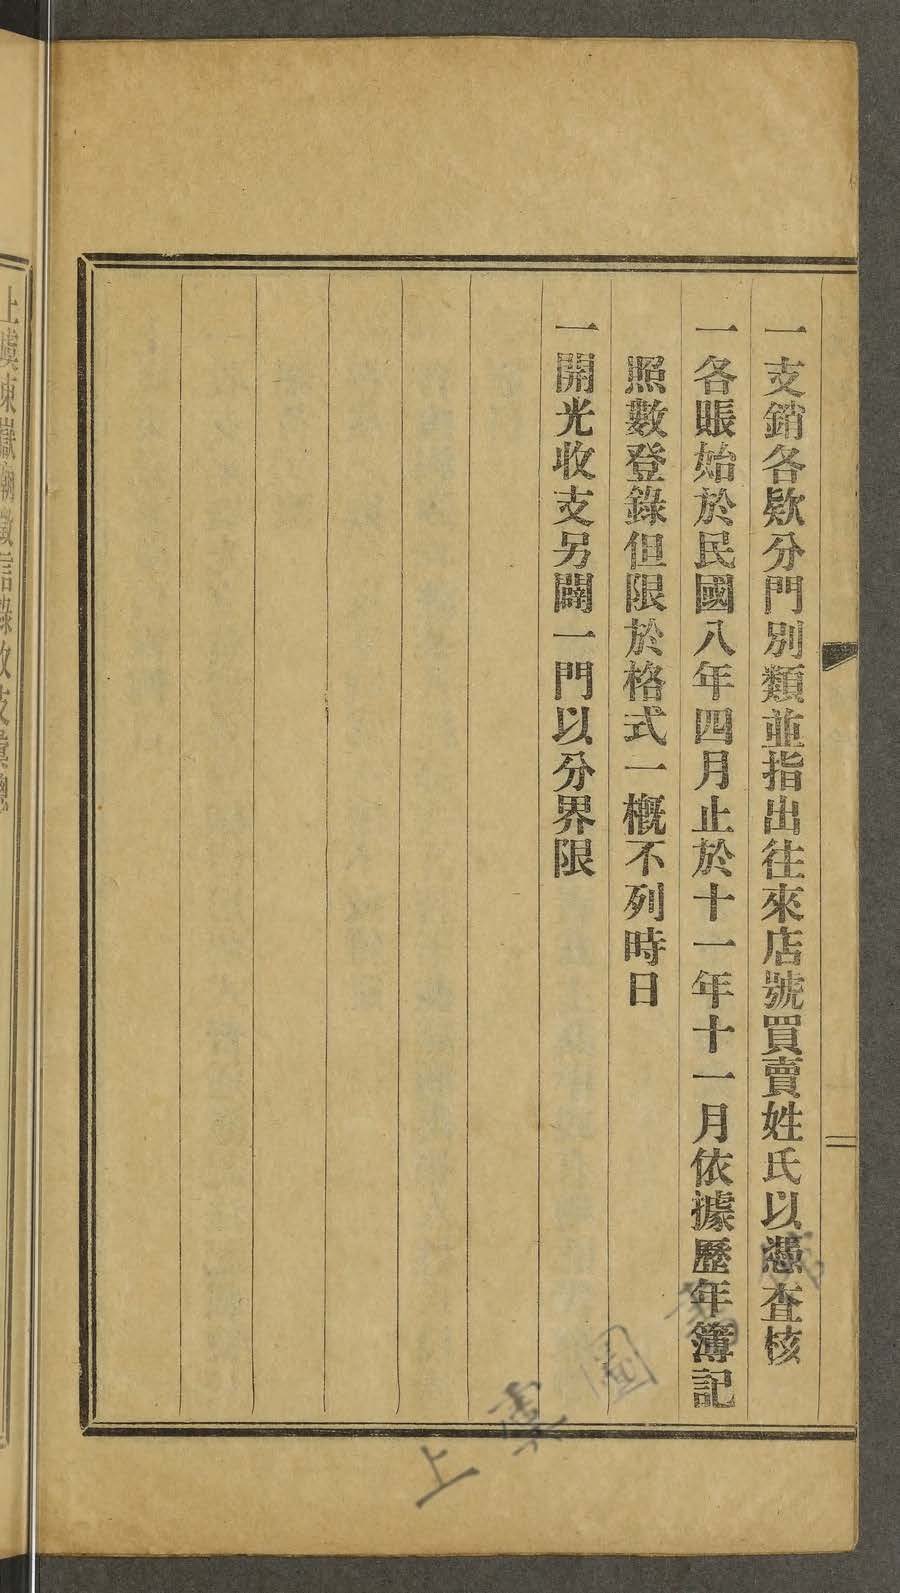 一支銷各欵分門別類並指出往來店號買賣姓氏以憑查核
一各賬始於民國八年四月止於十一年十一月依據歷年簿記
照數登錄但限於格式一槪不列時日
一開光收支另闢一門以分界限
上虞東嶽廟徵信錄收支彙總
上虞圖書館